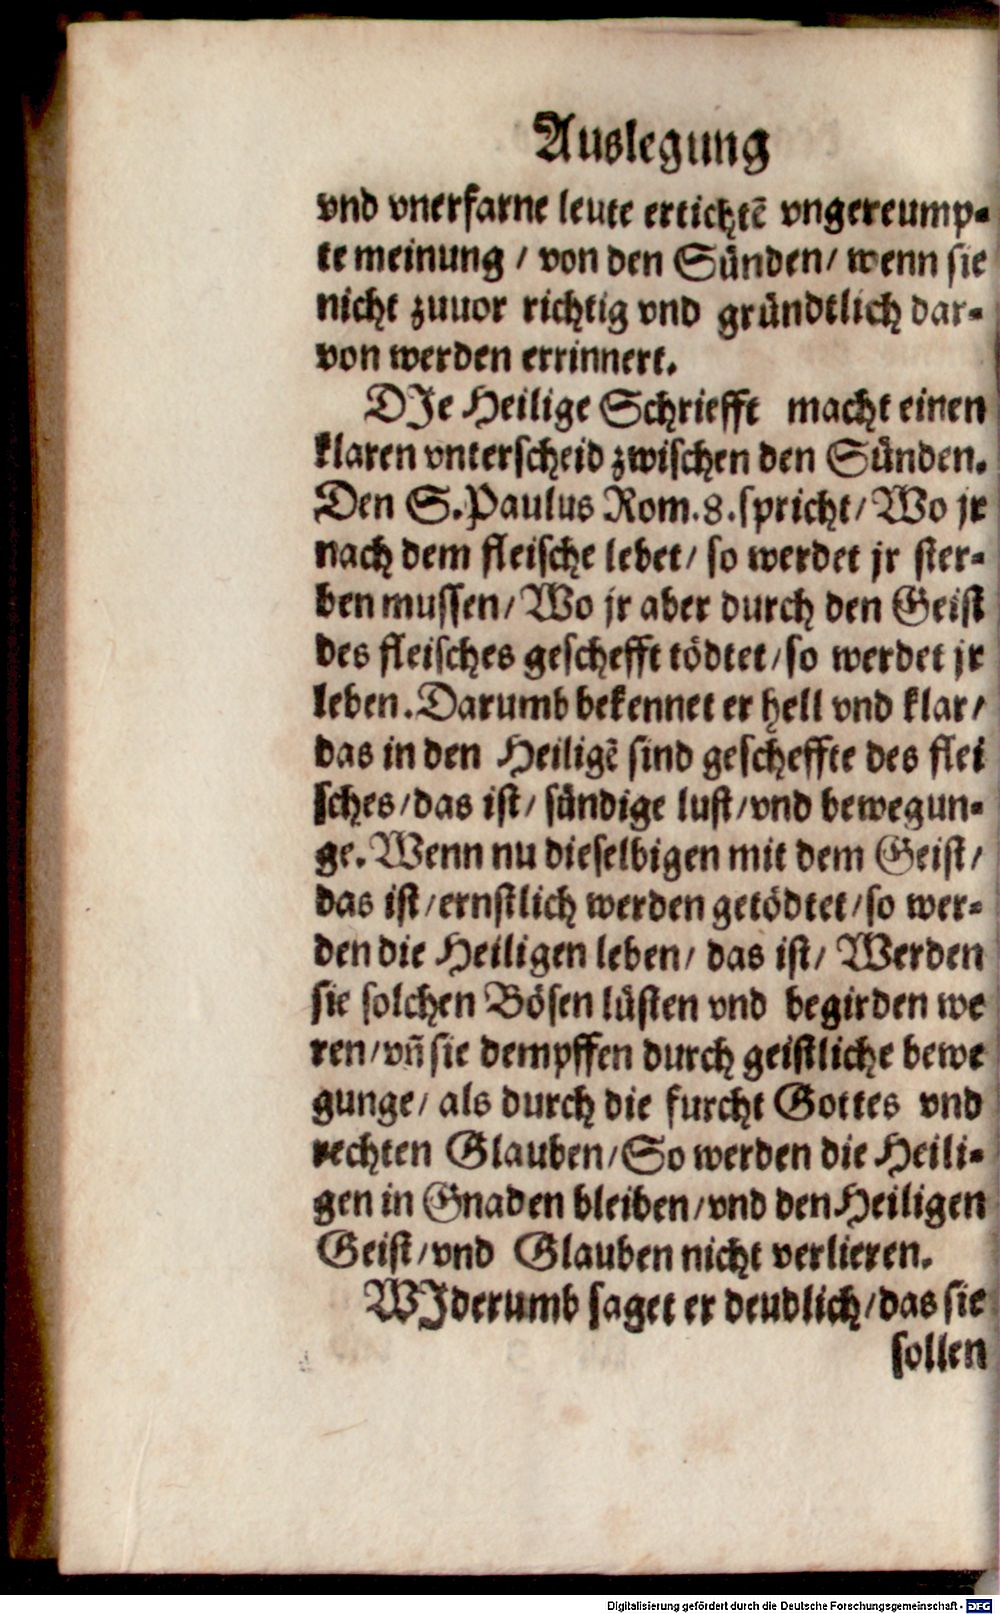 Auslegung
vnd vnerfarne leute ertichtẽ vngereump-
te meinung / von den Sünden / wenn sie
nicht zuuor richtig vnd gründtlich dar-
von werden errinnert.
DJe Heilige Schriefft macht einen
klaren vnterscheid zwischen den Sünden.
Den S. Paulus Rom. 8. spricht / Wo jr
nach dem fleische lebet / so werdet jr ster-
ben mussen / Wo jr aber durch den Geist
des fleisches geschefft tödtet / so werdet jr
leben. Darumb bekennet er hell vnd klar /
das in den Heiligẽ sind gescheffte des flei
sches / das ist / sündige lust / vnd bewegun-
ge. Wenn nu dieselbigen mit dem Geist /
das ist / ernstlich werden getödtet / so wer-
den die Heiligen leben / das ist / Werden
sie solchen Bösen lüsten vnd begirden we
ren / vñ sie dempffen durch geistliche bewe
gunge / als durch die furcht Gottes vnd
rechten Glauben / So werden die Heili-
gen in Gnaden bleiben / vnd den Heiligen
Geist / vnd Glauben nicht verlieren.
WJderumb saget er deudlich / das sie
sollen
Digitalisierung gefördert durch die Deutsche Forschungsgemeinschaft - DFG